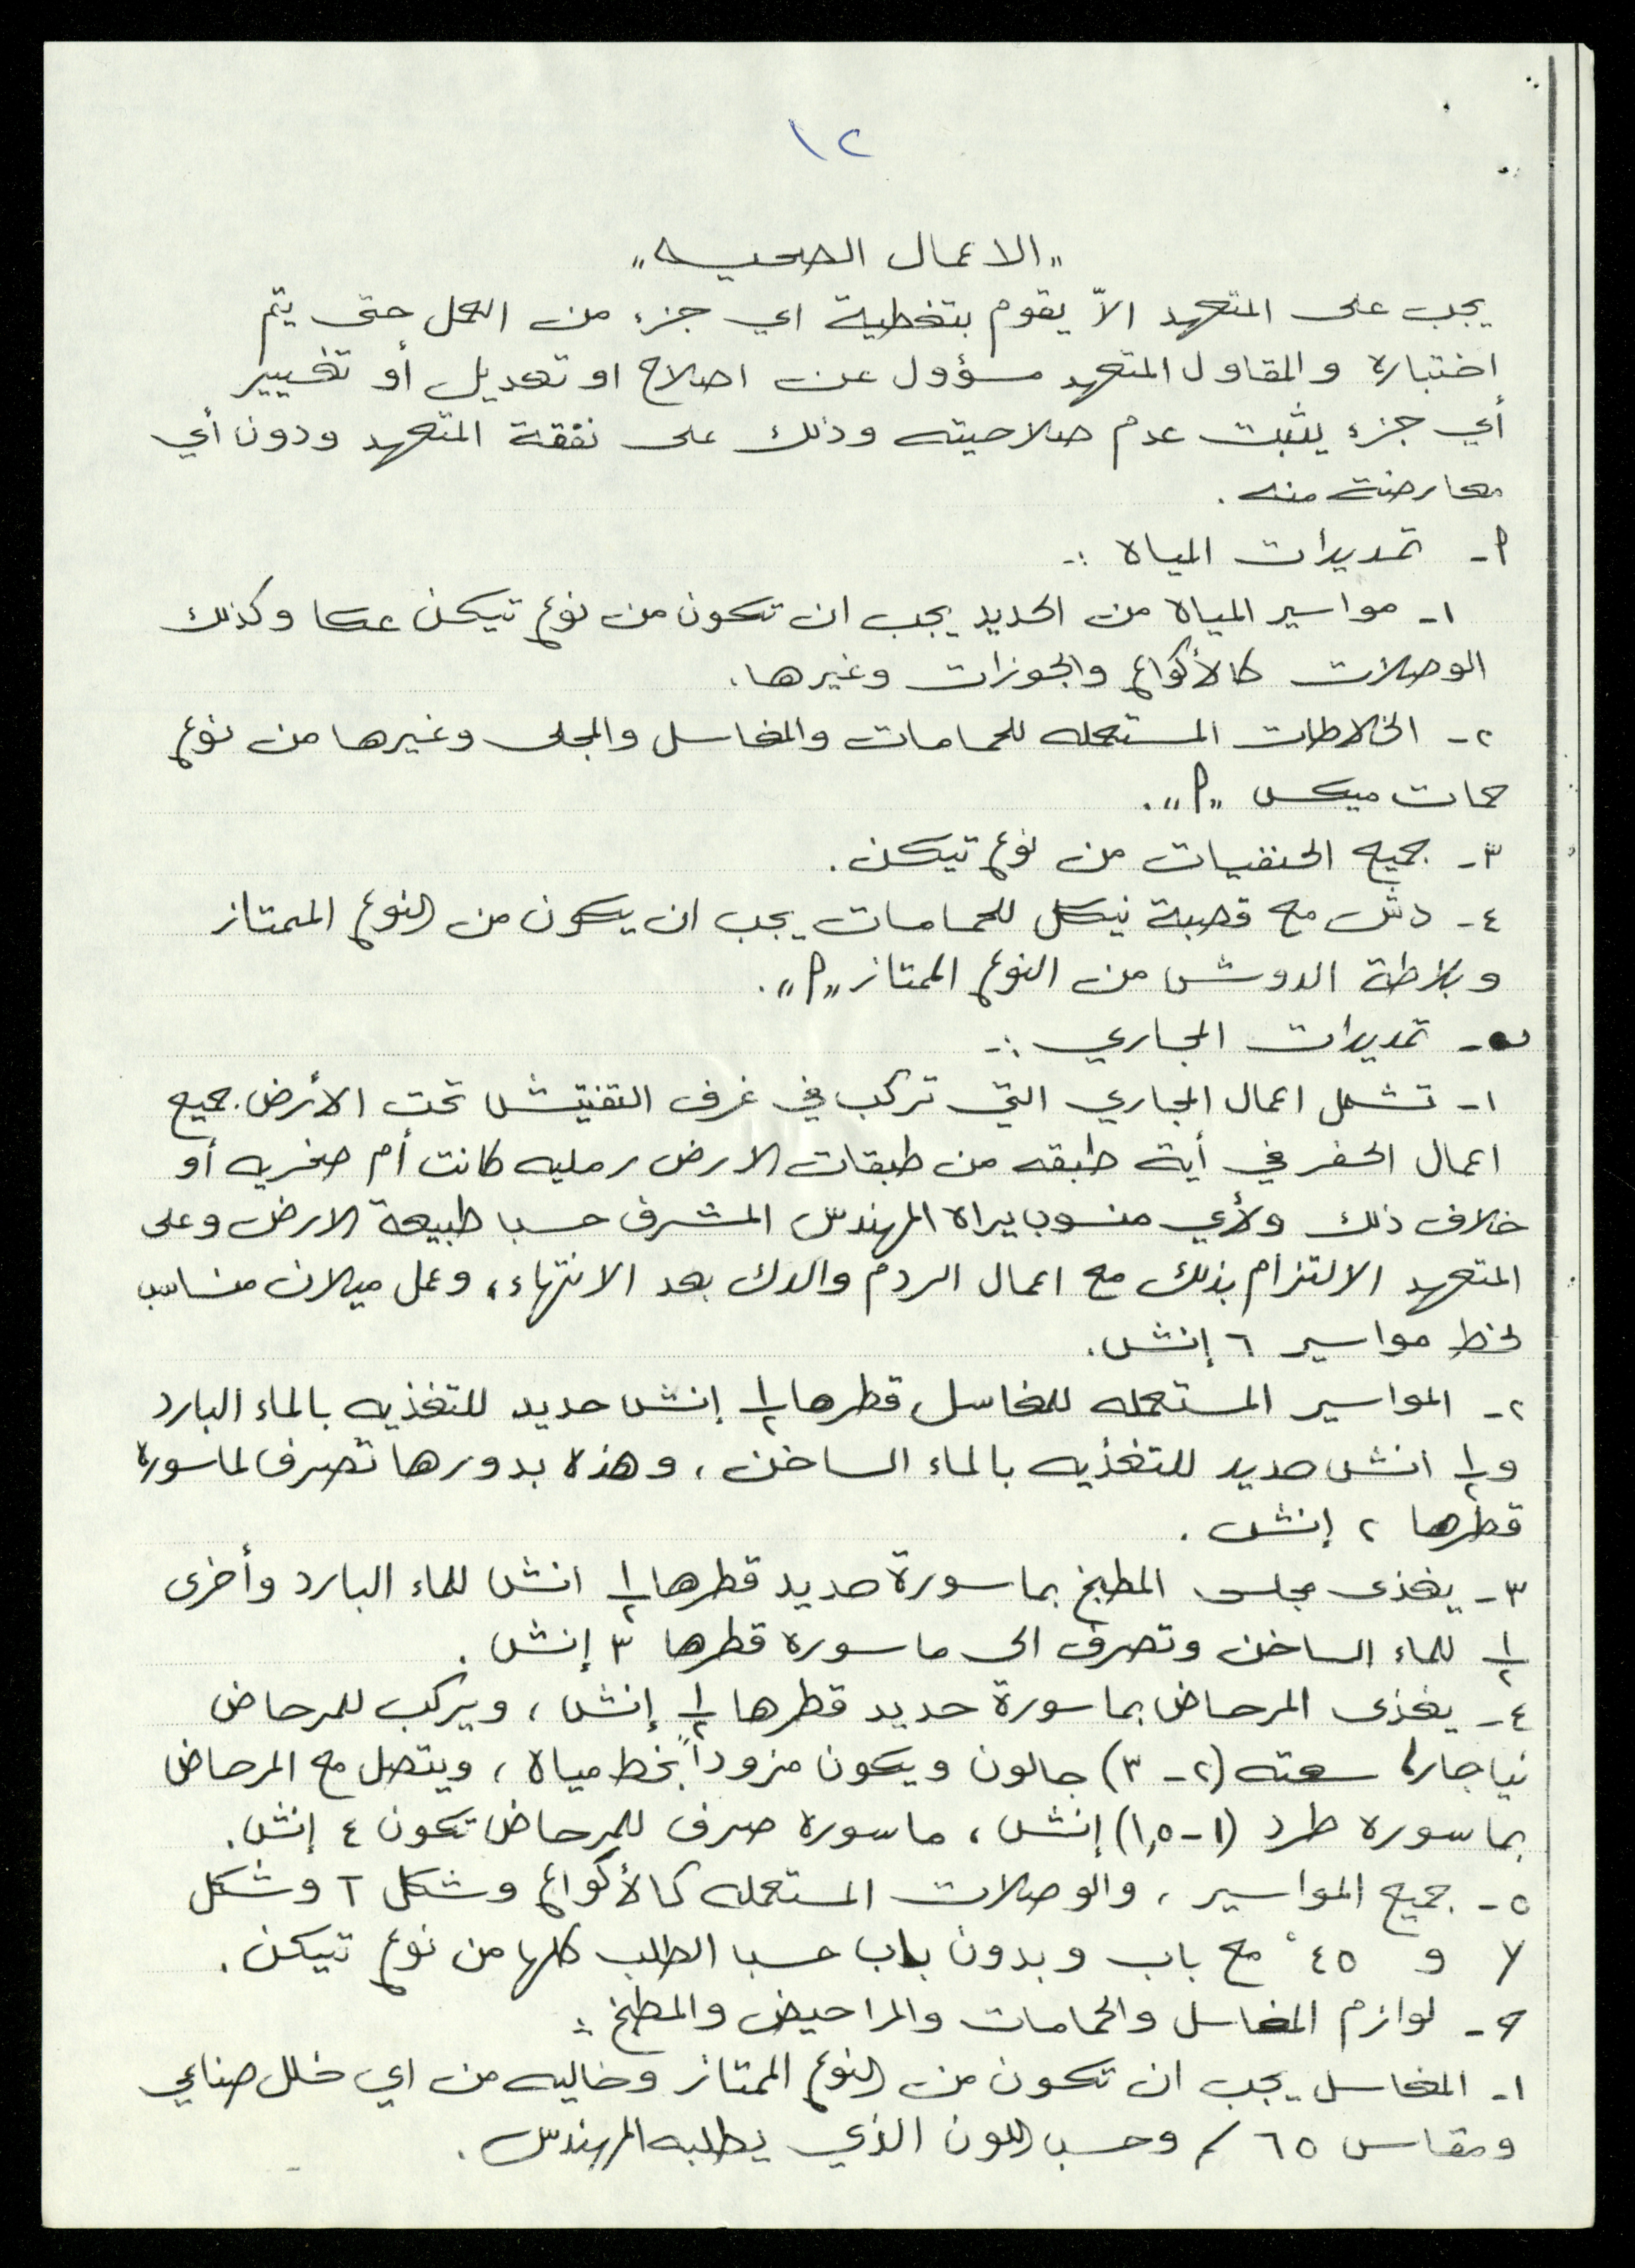 ١٢
"الاعمال الصحيه"
يجب على المتعهد الاّ يقوم بتغطية اي جزء من العمل حتى يتم
اختباره والمقاول المتعهد مسؤول عن اصلاح او تعديل أو تغيير
أي جزء يثبت عدم صلاحيته وذلك على نفقة المتعهد ودون أي
معارضة منه .
أ- تمديدات المياه :-
١- مواسير المياه من الحديد يجب ان تكون من نوع تيكن عكا وكذلك
الوصلات كالأكواع والجوزات وغيرها .
٢- الخلاطات المستعمله للحمامات والمغاسل والمجلى وغيرها من نوع
حمات ميكس "أ" .
٣- جميع الحنفيات من نوع تيكن .
٤- دش مع قصبة نيكل للحمامات يجب ان يكون من النوع الممتاز
وبلاطة الدوش من النوع الممتاز "أ" .
ب- تمديدات المجاري :-
١- تشمل اعمال المجاري التي تركب في غرف التفتيش تحت الأرض جميع
اعمال الحفر في أية طبقه من طبقات الارض رمليه كانت أم صخريه أو
خلاف ذلك ولأي منسوب يراه المهندس المشرف حسب طبيعة الارض وعلى
المتعهد الالتزام بذلك مع اعمال الردم والدك بعد الانتهاء، وعمل ميلان مناسب
لخط مواسير ٦ إنش .
٢- المواسير المستعمله للمغاسل قطرها ١/٢ إنش حديد للتغذيه بالماء البارد
و ١/٢ انش حديد للتغذيه بالماء الساخن ، وهذه بدورها تصرف لماسوره
قطرها ٢ إنش .
٣- يغذى مجلى المطبخ بماسورة حديد قطرها ١/٢ انش للماء البارد وأخرى
١/٢ للماء الساخن وتصرف الى ماسوره قطرها ٣ إنش .
٤- يغذى المرحاض بماسورة حديد قطرها ١/٢ إنش ، ويركب للمرحاض
نياجارا سعته (٢-٣) جالون ويكون مزوداً بخط مياه ، ويتصل مع المرحاض
بماسوره طرد (١-١,٥) إنش ، ماسوره صرف للمرحاض تكون ٤ إنش .
٥- جميع المواسير ، والوصلات المستعمله كالأكواع وشكل T وشكل
Y و ٤٥° مع باب وبدون باب حسب الطلب كلها من نوع تيكن .
ج- لوازم المغاسل والحمامات والمراحيض والمطبخ :
١- المغاسل يجب ان تكون من النوع الممتاز وخاليه من اي خلل صناعي
ومقاس ٦٥ / وحسب اللون الذي يطلبه المهندس .